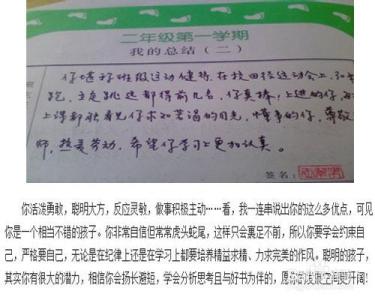 二年级第一学期
我的总结（二）
你堪称班级运动健将，在校田径运动会上，
跑，立定跳远都得前几名，你真棒，上进的你，每
上课都能看见你求知若渴的目光，懂事的你，尊敬
师，热爱劳动，希望你学习上更加认真。
签名：
你活泼勇敢，聪明大方，反应灵敏，做事积极主动……看，我一连串说出你的这么多优点，可见
你是一个相当不错的孩子。你非常自信但常常虎头蛇尾，这样只会裹足不前，所以你要学会约束自
己，严格要自己，无论是在纪律上还是在学习上都要培养精益求精、力求完美的作风。聪明的孩子，
其实你有很大的潜力，相信你会扬长避短，学会分析思考且与好书为伴的，愿你的发展空间更开阔！